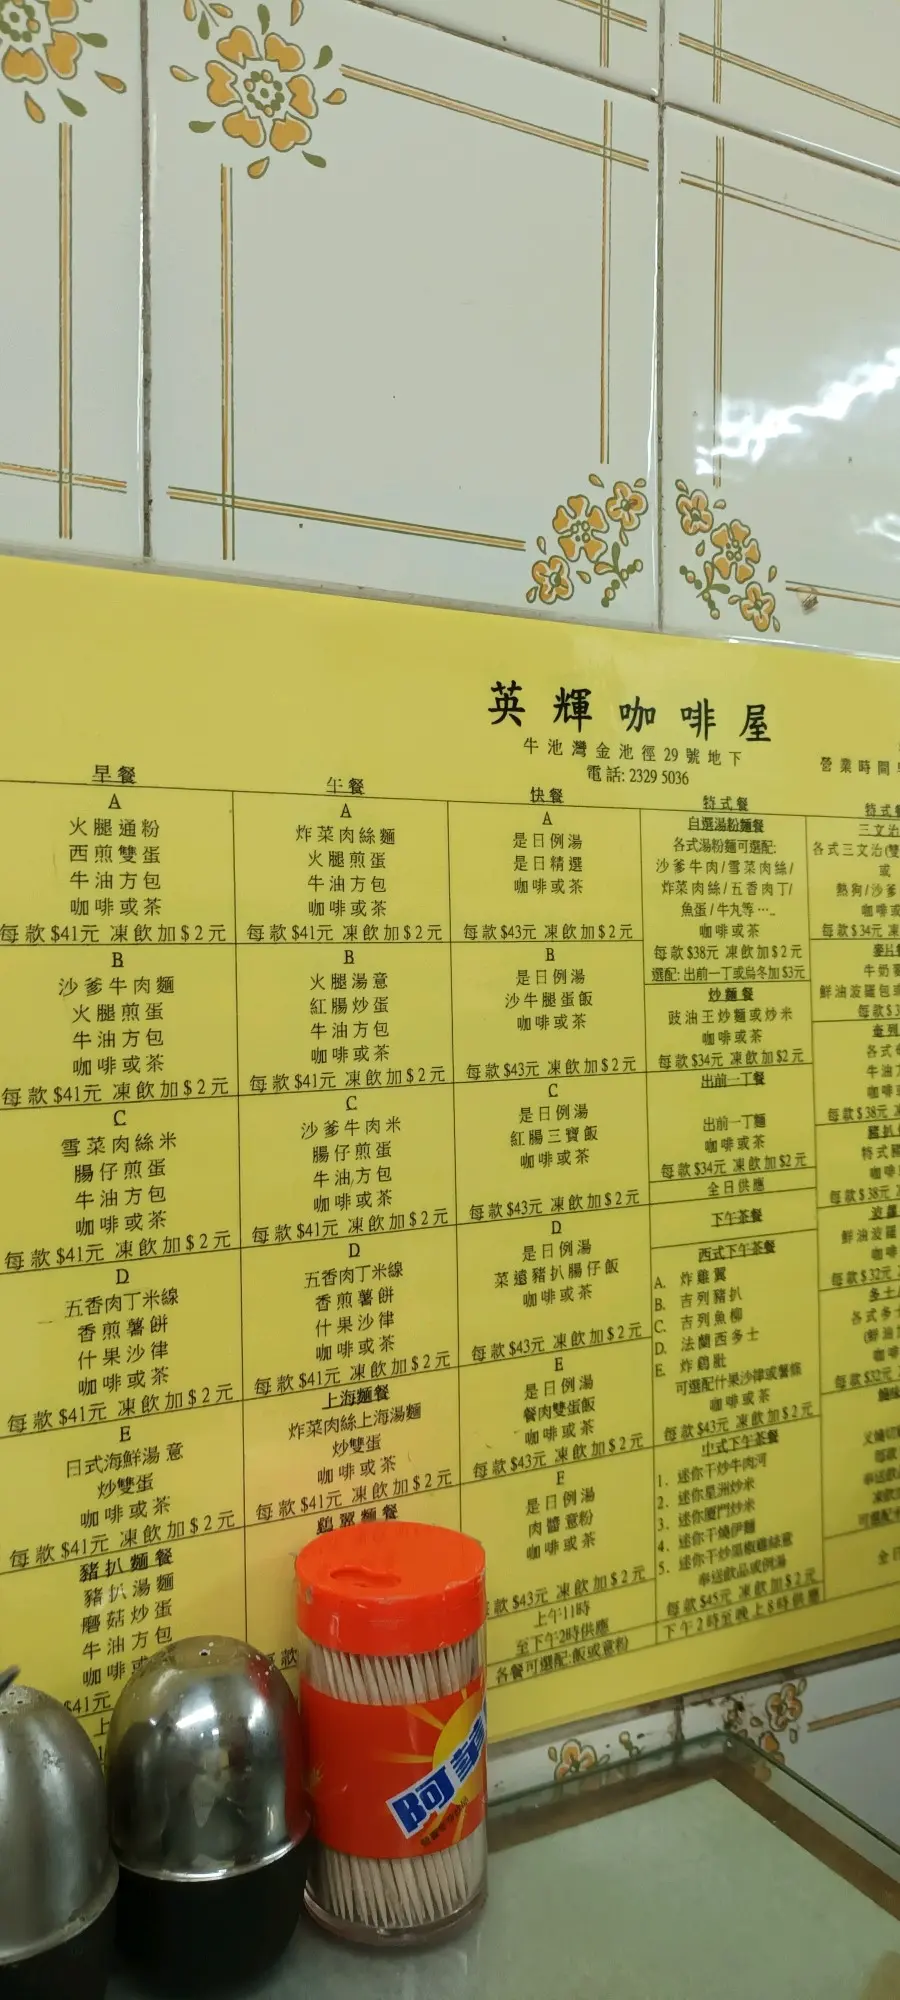 英輝咖啡屋
牛池灣金池徑29號地下
電話: 2329 5036
營業時間
早餐
A
火腿通粉
西煎雙蛋
牛油方包
咖啡或茶
每款$41元 凍飲加$2元
B
沙爹牛肉麵
火腿煎蛋
牛油方包
咖啡或茶
每款$41元 凍飲加$2元
C
雪菜肉絲米
腸仔煎蛋
牛油方包
咖啡或茶
每款$41元 凍飲加$2元
D
五香肉丁米線
香煎薯餅
什果沙律
咖啡或茶
每款$41元 凍飲加$2元
E
日式海鮮湯意
炒雙蛋
咖啡或茶
每款$41元 凍飲加$2元
豬扒麵餐
豬扒湯麵
磨菇炒蛋
牛油方包
咖啡或
$41元
上
午餐
A
炸菜肉絲麵
火腿煎蛋
牛油方包
咖啡或茶
每款$41元 凍飲加$2元
B
火腿湯意
紅腸炒蛋
牛油方包
咖啡或茶
每款$41元 凍飲加$2元
C
沙爹牛肉米
腸仔煎蛋
牛油方包
咖啡或茶
每款$41元 凍飲加$2元
D
五香肉丁米線
香煎薯餅
什果沙律
咖啡或茶
每款$41元 凍飲加$2元
上海麵餐
炸菜肉絲上海湯麵
炒雙蛋
咖啡或茶
每款$41元 凍飲加$2元
鷄翼麵餐
快餐
A
是日例湯
是日精選
咖啡或茶
每款$43元 凍飲加$2元
B
是日例湯
沙牛腿蛋飯
咖啡或茶
每款$43元 凍飲加$2元
C
是日例湯
紅腸三寶飯
咖啡或茶
每款$43元 凍飲加$2元
D
是日例湯
菜遠豬扒腸仔飯
咖啡或茶
每款$43元 凍飲加$2元
E
是日例湯
餐肉雙蛋飯
咖啡或茶
每款$43元 凍飲加$2元
F
是日例湯
肉醬意粉
咖啡或茶
款$43元 凍飲加$2元
上午11時
至下午2時供應
各餐可選配:飯或意粉
特式餐
自選湯粉麵餐
各式湯粉麵可選配:
沙爹牛肉/雪菜肉絲/
炸菜肉絲/五香肉丁/
魚蛋/牛丸等…..
咖啡或茶
每款$38元 凍飲加$2元
選配: 出前一丁或烏冬加$3元
炒麵餐
豉油王炒麵或炒米
咖啡或茶
每款$34元 凍飲加$2元
出前一丁餐
出前一丁麵
咖啡或茶
每款$34元 凍飲加$2元
全日供應
下午茶餐
西式下午茶餐
A. 炸雞翼
B. 吉列豬扒
C. 吉列魚柳
D. 法蘭西多士
E. 炸鷄肶
可選配什果沙律或薯條
咖啡或茶
每款$43元 凍飲加$2元
中式下午茶餐
1. 迷你干炒牛肉河
2. 迷你星洲炒米
3. 迷你厦門炒米
4. 迷你干燒伊麵
5. 迷你干炒黑椒雞絲意
奉送飲品或例湯
每款$45元 凍飲加$2元
下午2時至晚上8時供應
特式餐
三文治
各式三文治(雙
或
熱狗/沙爹
咖啡或
每款$34元 凍
麥片
牛奶
鮮油波羅包或
每款$3
奄列
各式
牛油方
咖啡或
每款$38元 凍
豬扒
特式豬
咖啡
每款$38元
波羅
鮮油波羅
咖啡
每款$32元
多士
各式多士
(鮮油
咖啡
每款$32元
全日
阿華